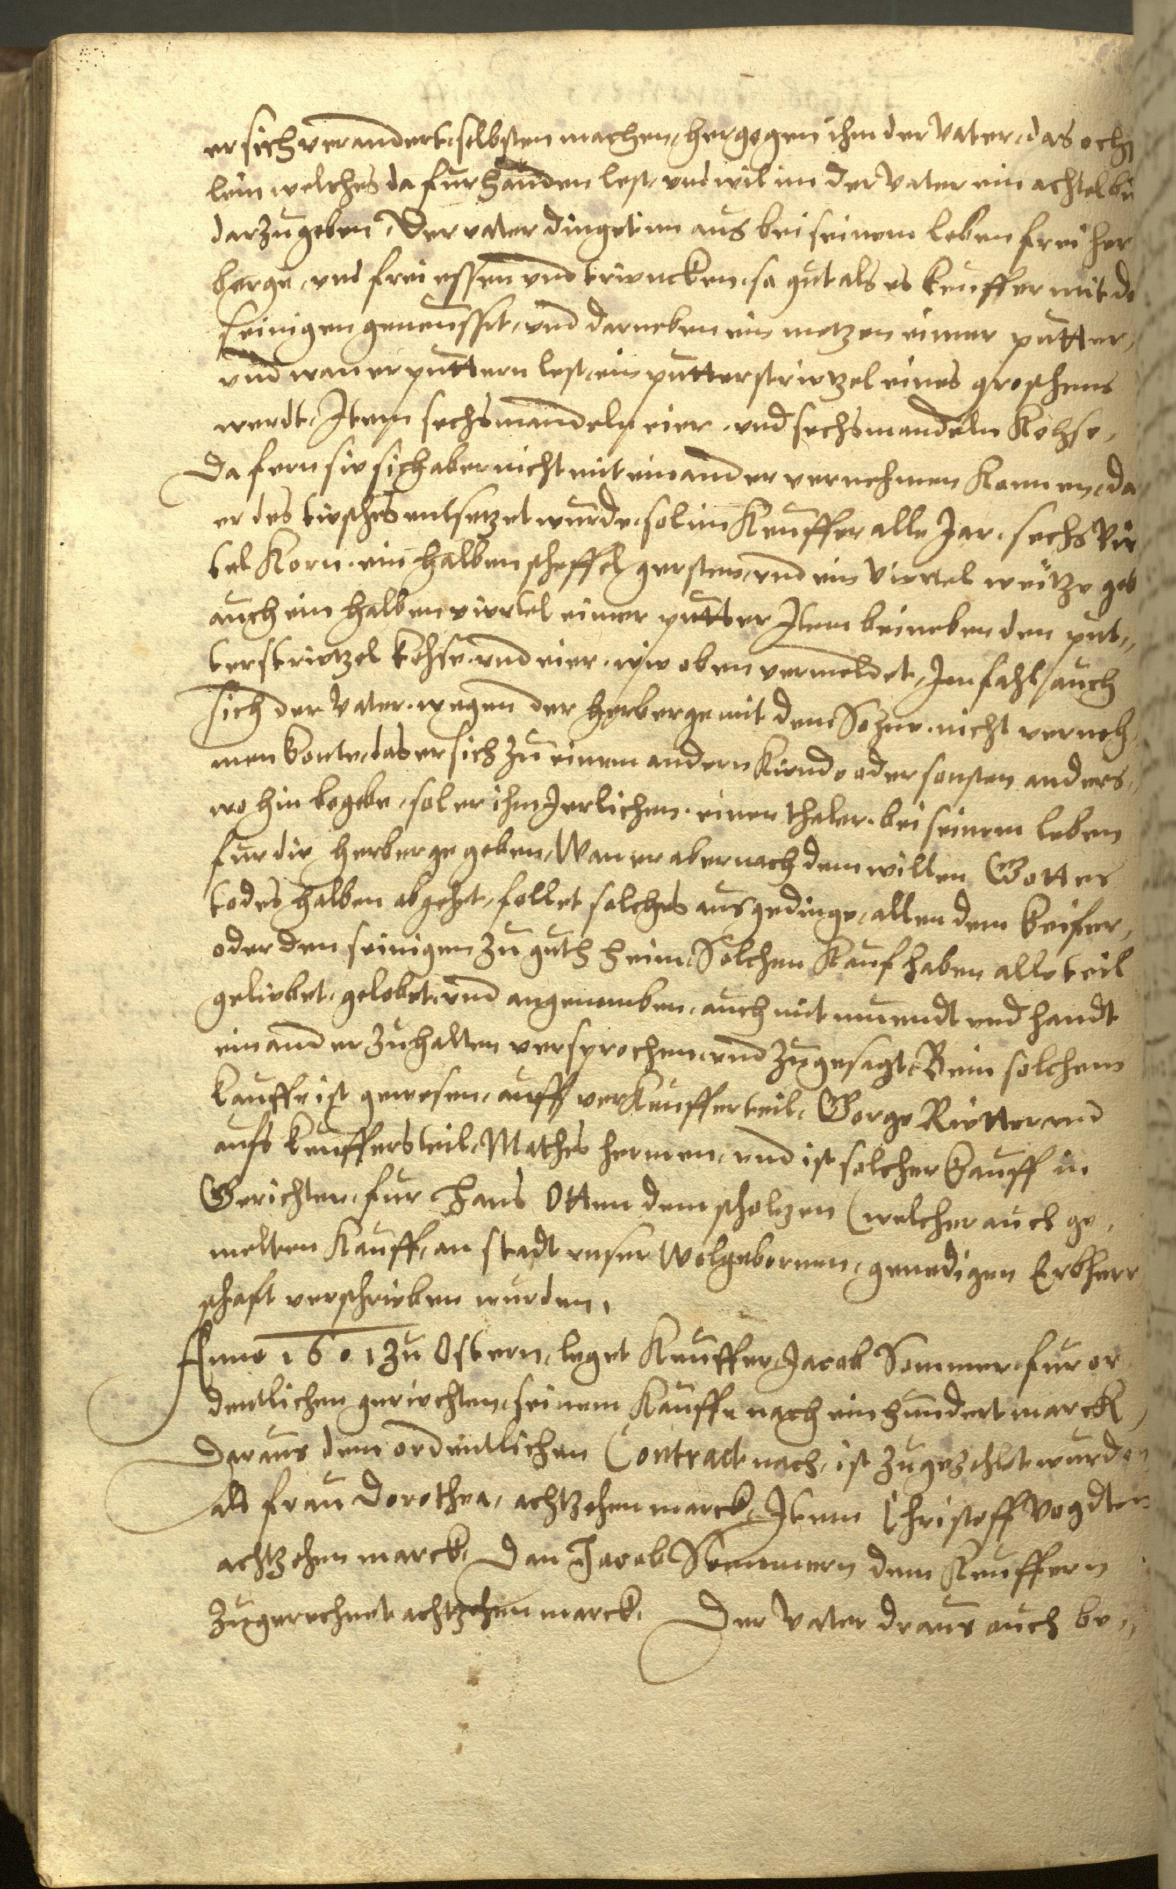 er sich verandert, selbsten machen, hergegen ihm der Vater, das ochs
lein welches da furhanden lest, und wil im der Vater ein achtel bir
darzu geben, Der vater dinget im aus bei seinem leben frei her
berge, und frei essen und trincken, so gut als es keuffer mit de
seinigen geneusset, und darneben ein metzen eimer putter,
und wan er puttern lest, ein putterstrietzel eines groschens
werdt, Item sechs mandeln eier, und sechs mandeln Kehse,
Da fern sie sich aber nicht mit einander vernehmen konnen, da
er des tisches entsetzet wurde, sol im Keuffer alle Jar, sechs Vir
tel Korn, ein halben scheffel gersten, und ein Viertel weitze geb
auch ein halben viertel eimer putter Item beineben den put,,
terstrietzel kehse und eier, wie oben vermeldet, Im fahl auch
sich der Vater, wegen der herberge mit dem Sohne, nicht verneh,
men konte, das er sich zu einem andern kinde oder sonsten anders,,
wo hin begebe, sol er ihm Jerlichen, einen thaler, bei seinem leben
fur die herberge geben, Wan er aber nach dem willen Gottes
todes halben abgehet, fellet solches ausgedinge, allen dem keifer,
oder den seinigen zu guth heim, Solchen Kauf haben alle teil
geliebet, gelobet, und angenomben, auch mit mundt und handt
einander zuhalten versprochen, und zugesagt, Bein solchem
kauffe ist gewesen, auff verkeuffer teil, George Rietter und
aufs keuffers teil, Mathes hermen, und ist solcher kauff in
Gerichten, fur Hans Otten dem scholzen (welcher auch ge,
melten Kauff, an stadt unser Wolgebornen, genedigen Erbherr
schaft verschrieben wurden,
Anno 1601 zu Ostern, leget Keuffer, Jacob Sommer, fur or
dentlichen gerichten, seinem Kauffe nach ein hundert marck,
Daraus dem ordentlichen Contract nach, ist zugezehlt wurden
als frau Dorothea, achtzehen marck, Item Christoff Vogdten
achtzehen marck, Dan Jacob Sommern dem Keuffern
zugerechnet achtzehen marck, Der Vater draus auch be,,